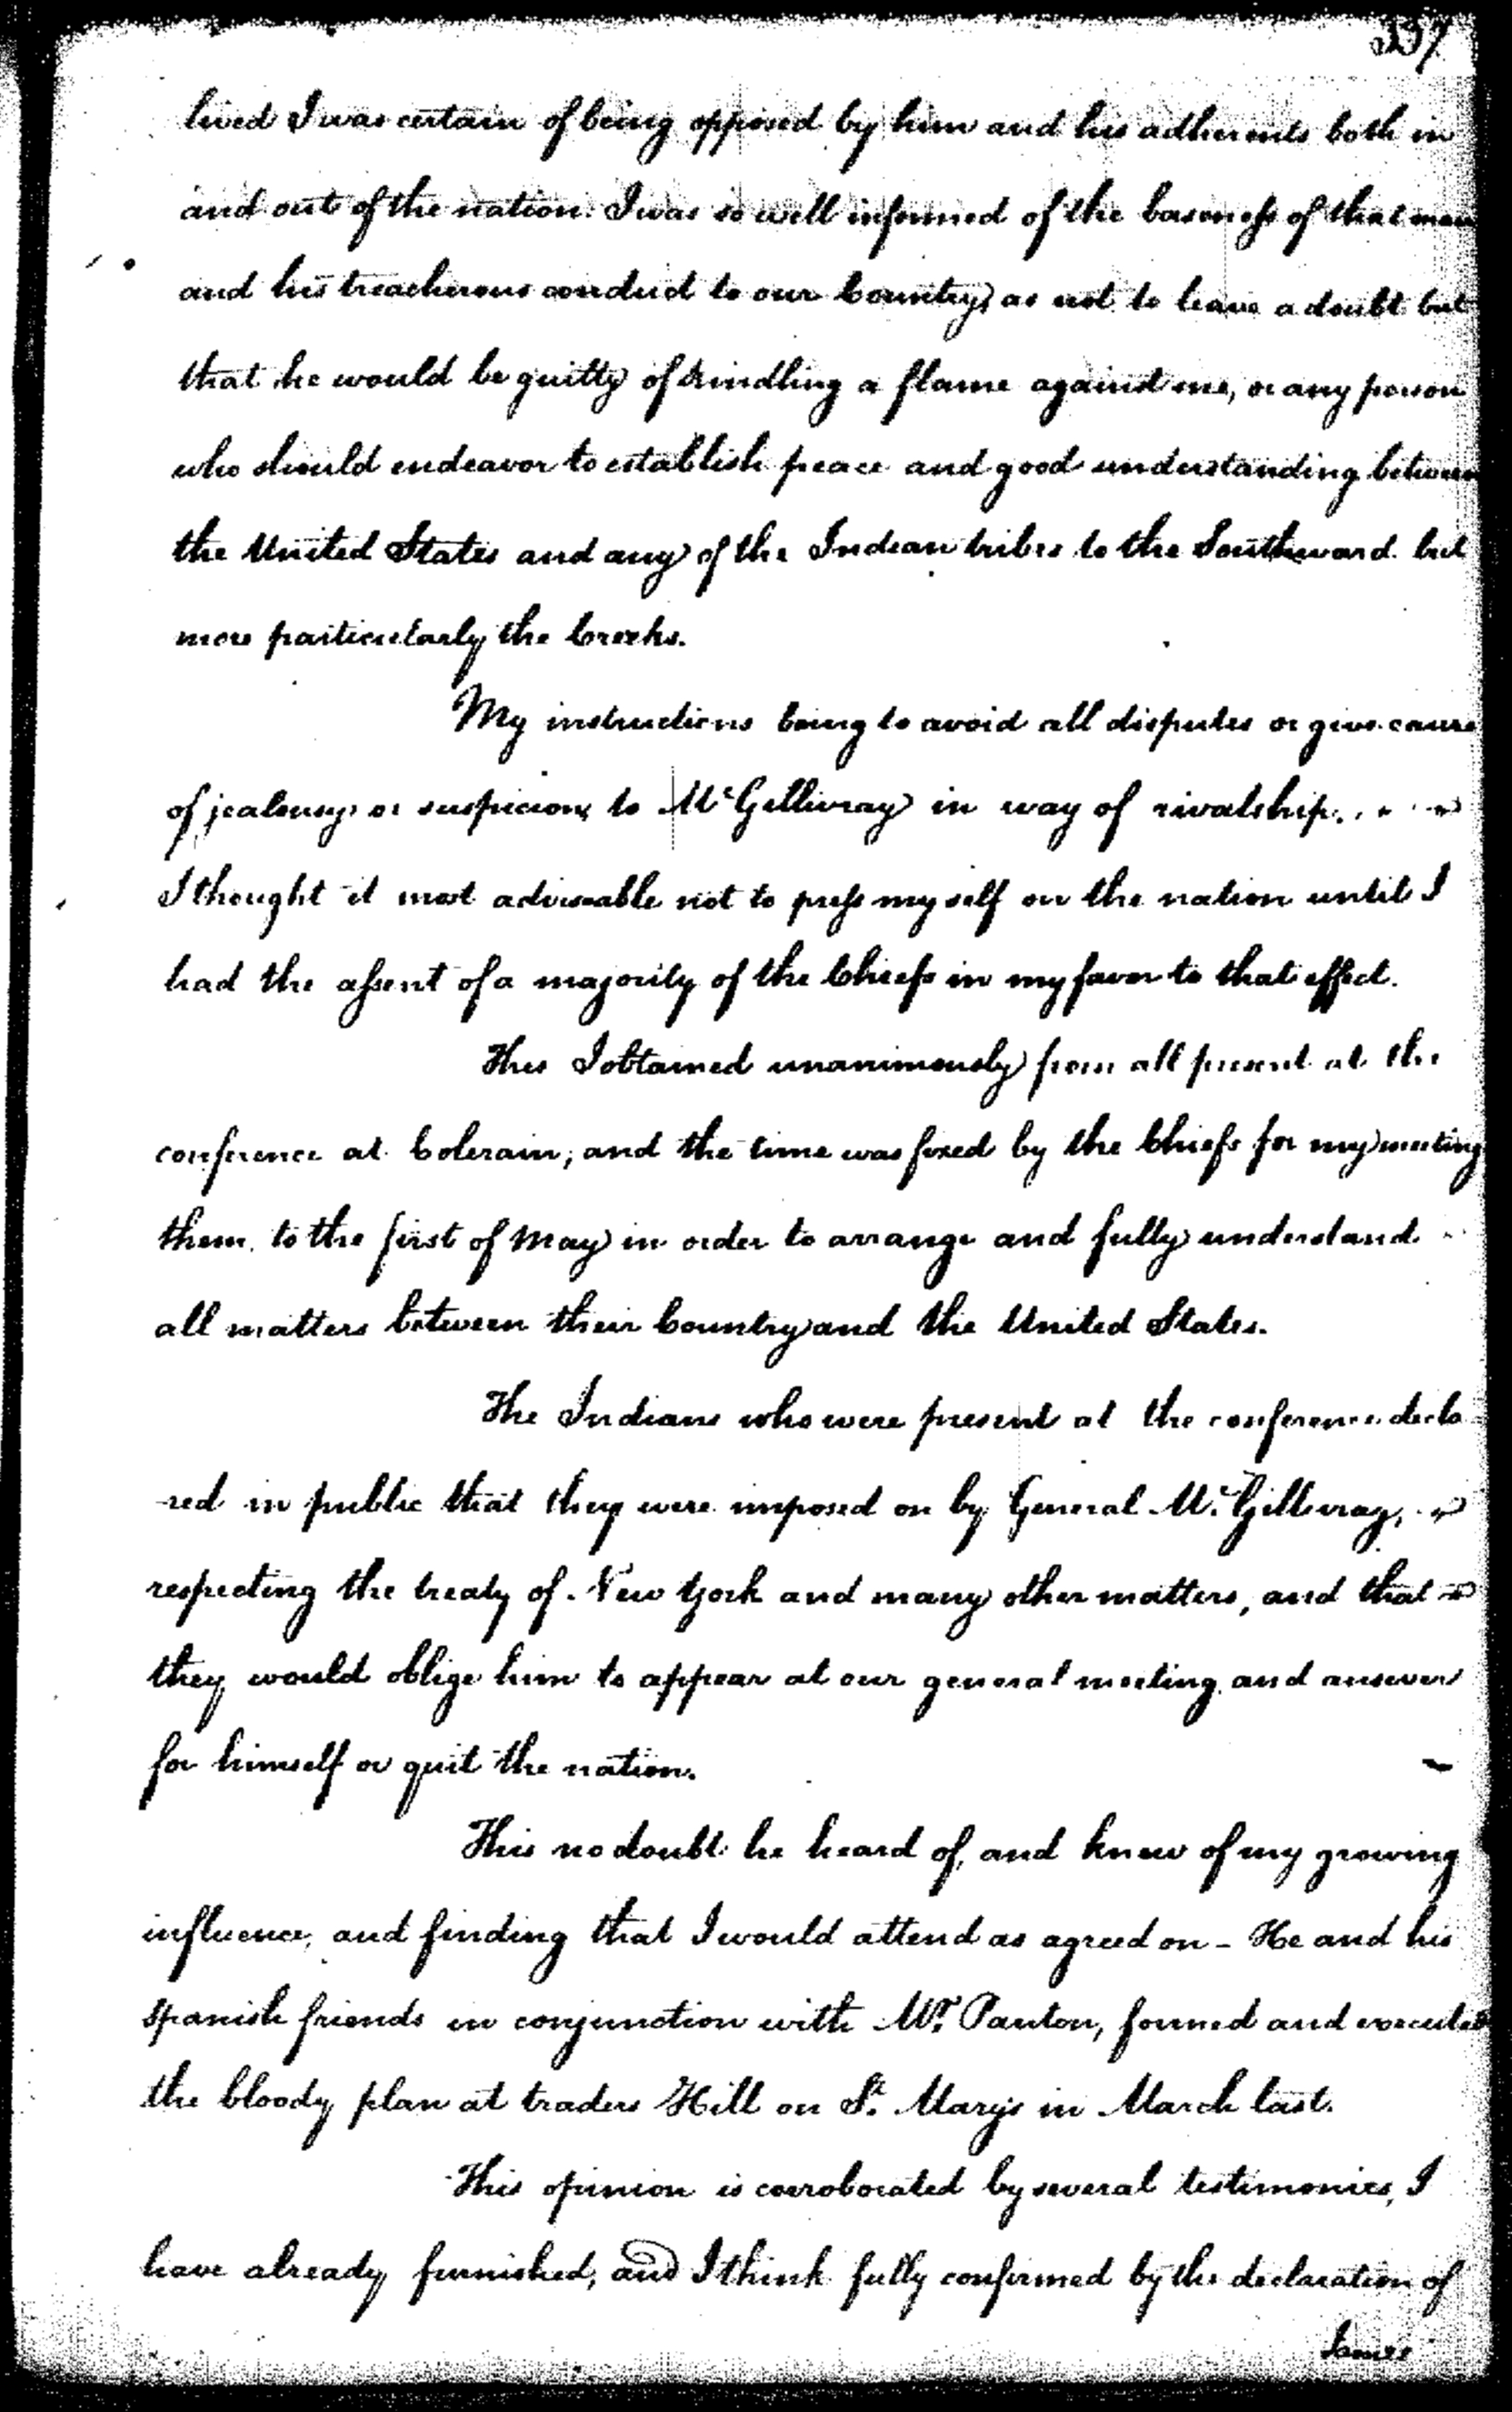 lived I was certain of being opposed by him and his adherents both in
and out of the nation. I was so well informed of the baseness of that man
and his treacherous conduct to our Country, as not to leave a doubt but
that he would be guilty of kindling a flame against me, or any person
who should endeavor to establish peace and good understanding between
the United States and any of the Indian tribes to the Southward but
more particularly the Creeks.
My instructions being to avoid all disputes or give cause
of jealousy or suspicion, to McGillivray in way of rivalship.
I thought it most adviseable not to press myself on the nation until I
had the assent of a majority of the Chiefs in my favor to that effect.
This I obtained unanimously from all present at the
conference at Colerain, and the time was fixed by the Chiefs for my meeting
them to the first of May in order to arrange and fully understand
all matters between their Country and the United States.
The Indians who were present at the conference decla
-red in public that they were imposed on by General Mc.Gillivray,
respecting the treaty of New York and many other matters, and that
they would oblige him to appear at our general meeting and answer
for himself or quit the nation.
This no doubt he heard of, and knew of my growing
influence, and finding that I would attend as agreed on - He and his
spanish friends in conjunction with Mr. Panton, formed and executed
the bloody plan at traders Hill on St. Mary's in March last.
This opinion is corroborated by several testimonies, I
have already furnished, and I think fully confirmed by the declaration of
James